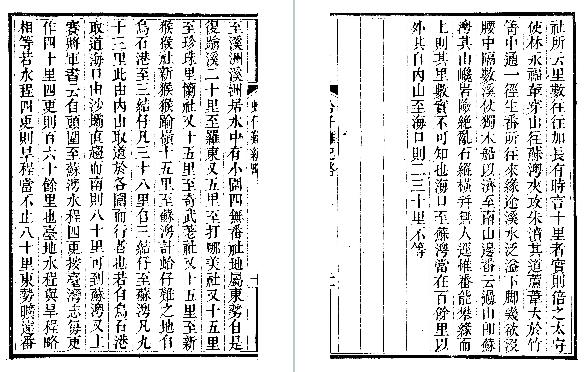 至溪洲溪洲居水中有小圍四無番社地屬東勢自是
復踰溪二十里至羅東又五里至打哪美社又十五里
至珍珠里簡社又十五里至奇武荖社又十五里至新
猴猴社新猴猴踰嶺十五里至蘇澳計蛤仔難之地自
烏石港至三結仔凡三十八里自三結仔至蘇澳凡九
十三里此由內山取道於各圍而行者也若自烏石港
取道海口由沙崙直趨而南則八十里可到蘇澳又上
賽將軍書云自頭圍至蘇澳水程四更按臺灣志每更
作四十里四更則百六十餘里也臺地水程與旱程略
相等若水程四更則旱程當不止八十里東勢曠遠番
社所云里數往往加長有時言十里者實則倍之太守
使林永福翠穿山往蘇澳夾攻朱濆其道蘆葦大於竹
箐中通一徑生番所往來緣途溪水泛溢下腳幾欲沒
腰中隔數溪仗獨木船以濟至南山邊番云過山卽蘇
澳其山巉岩險絶亂石羅橫幷無人逕維番能攀緣而
上則其里數實不可知也海口至蘇澳當在百餘里以
外其自內山至海口則二三十里不等